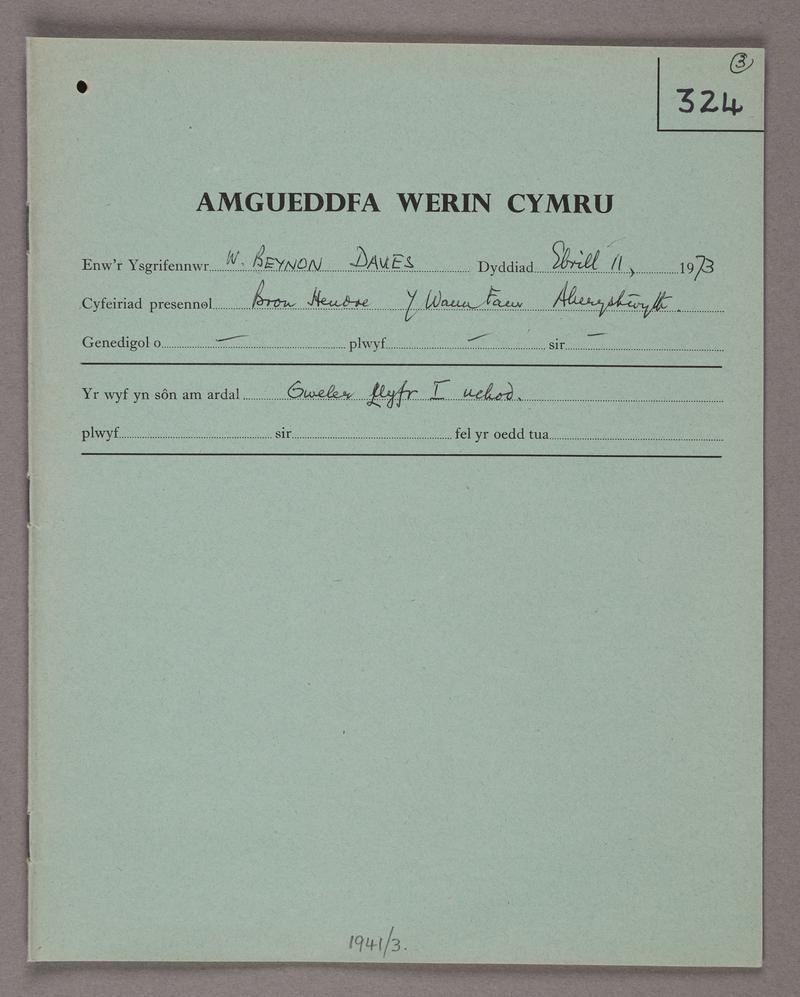 ③
324
AMGUEDDFA WERIN CYMRU
Enw'r Ysgrifennwr W. BEYNON DAVIES Dyddiad Ebrill 11, 1973
Cyfeiriad presennol Bron Hendre Y Waun Fawr Aberystwyth.
Genedigol o — plwyf — sir —
Yr wyf yn sôn am ardal Gweler llyfr I uchod.
plwyf sir fel yr oedd tua
1941/3.